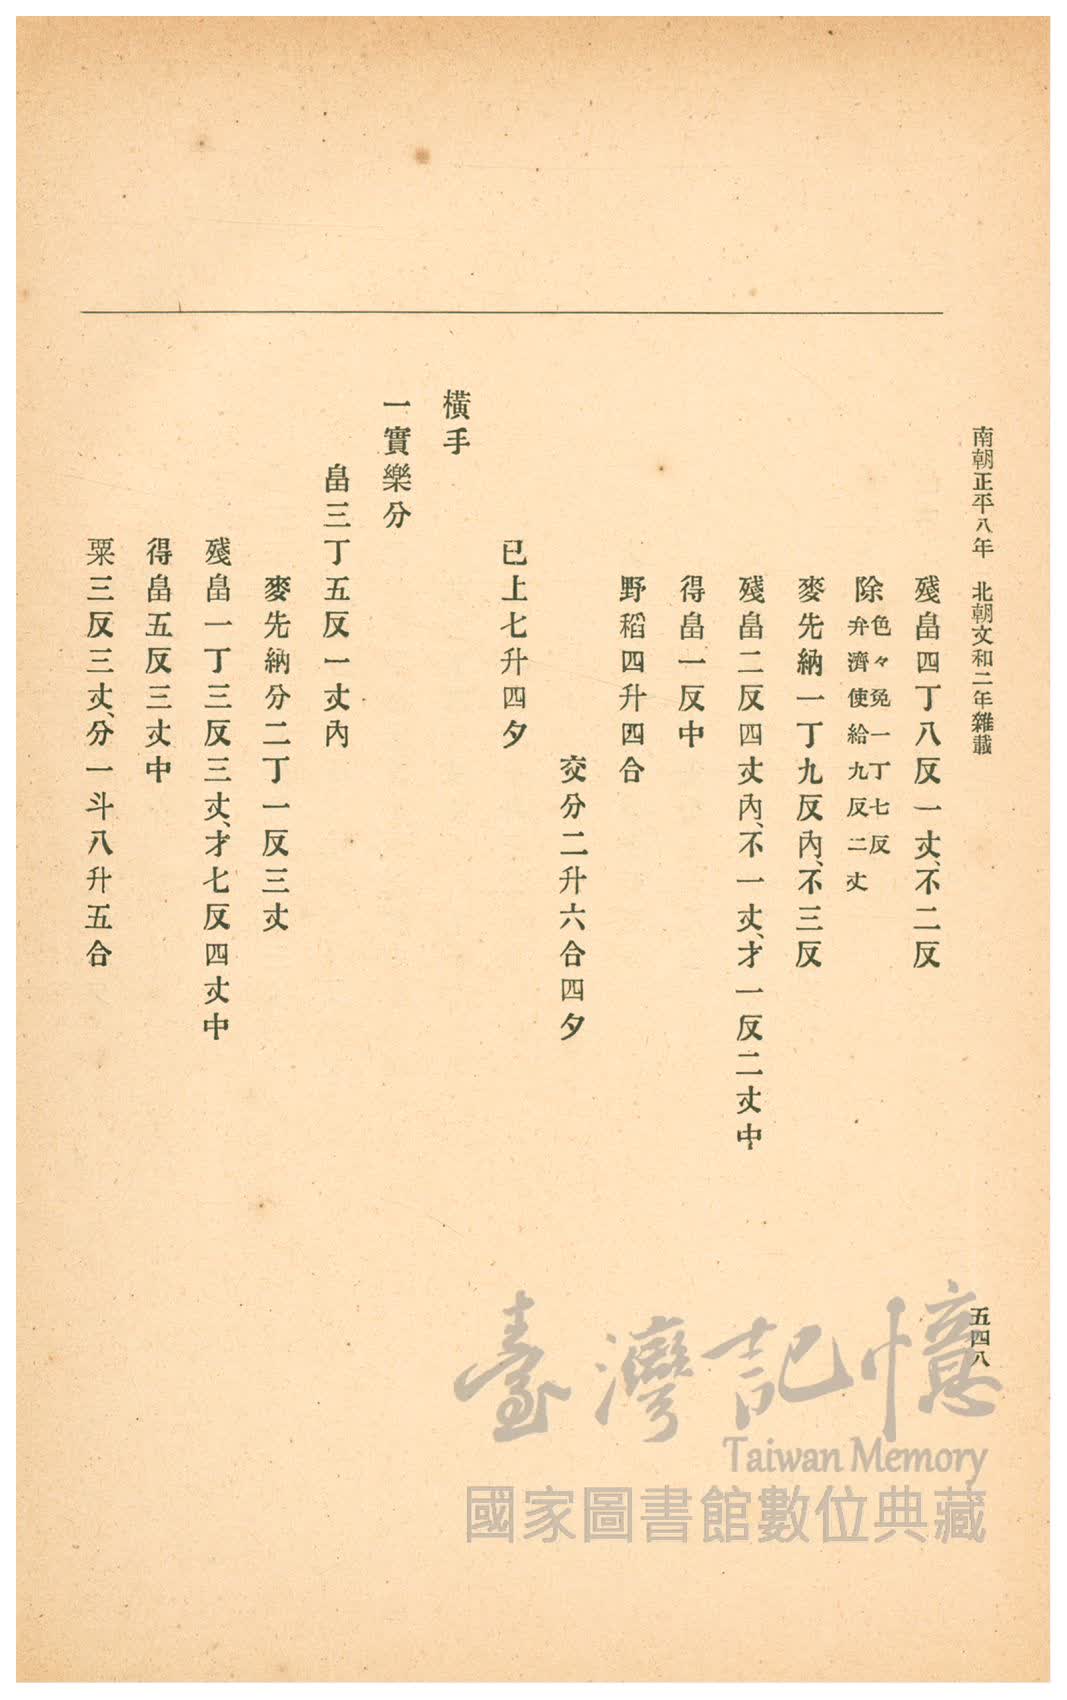 南朝正平八年　北朝文和二年雜載
五四八
殘畠四丁八反一丈、不二反
除色々免一丁七反
弁濟使給九反二丈
麥先納一丁九反內、不三反
殘畠二反四丈內、不一丈、才一反二丈中
得畠一反中
野稻四升四合
交分二升六合四夕
已上七升四夕
橫手
一實樂分
畠三丁五反一丈內
麥先納分二丁一反三丈
殘畠一丁三反三丈、才七反四丈中
得畠五反三丈中
粟三反三丈、分一斗八升五合
臺灣記憶
Taiwan Memory
國家圖書館數位典藏